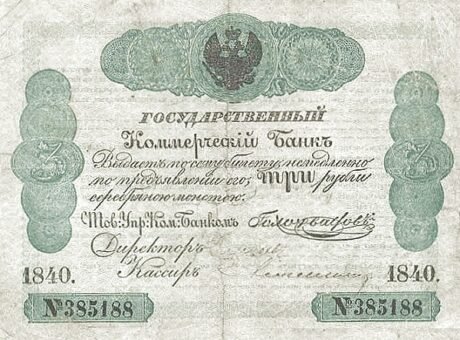 ГОСУДАРСТВЕННЫЙ
Коммерческій Банкъ
Выдаетъ по сему билету, немедленно
по предъявленіи его; три рубли
серебряною монетою.
Тов: Упр: Ком: Банкомъ
Директоръ
Кассиръ
1840. 1840.
№385188 №385188